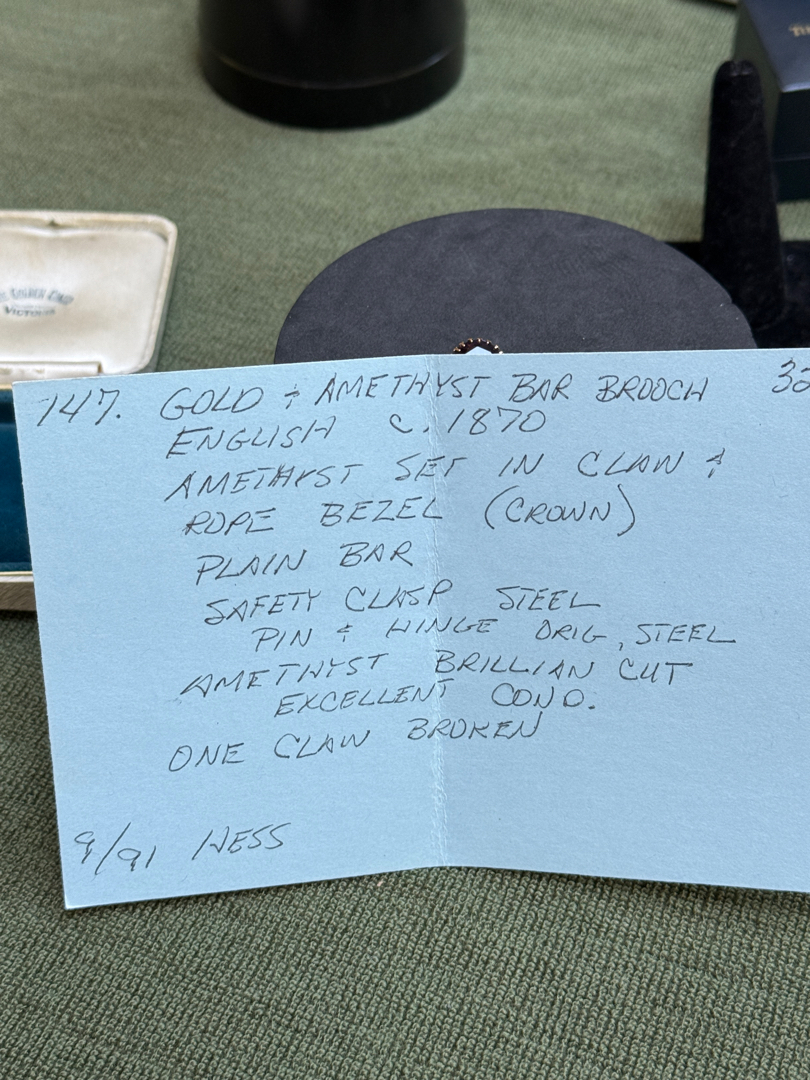 VICTORIA
147. GOLD & AMETHYST BAR BROOCH
ENGLISH c. 1870
AMETHYST SET IN CLAW &
ROPE BEZEL (CROWN)
PLAIN BAR
SAFETY CLASP STEEL
PIN & HINGE ORIG, STEEL
AMETHYST BRILLIAN CUT
EXCELLENT COND.
ONE CLAW BROKEN
9/91 HESS